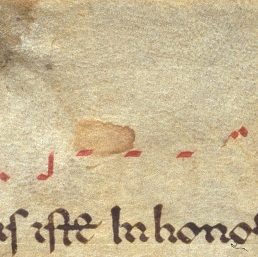 us iste In hono